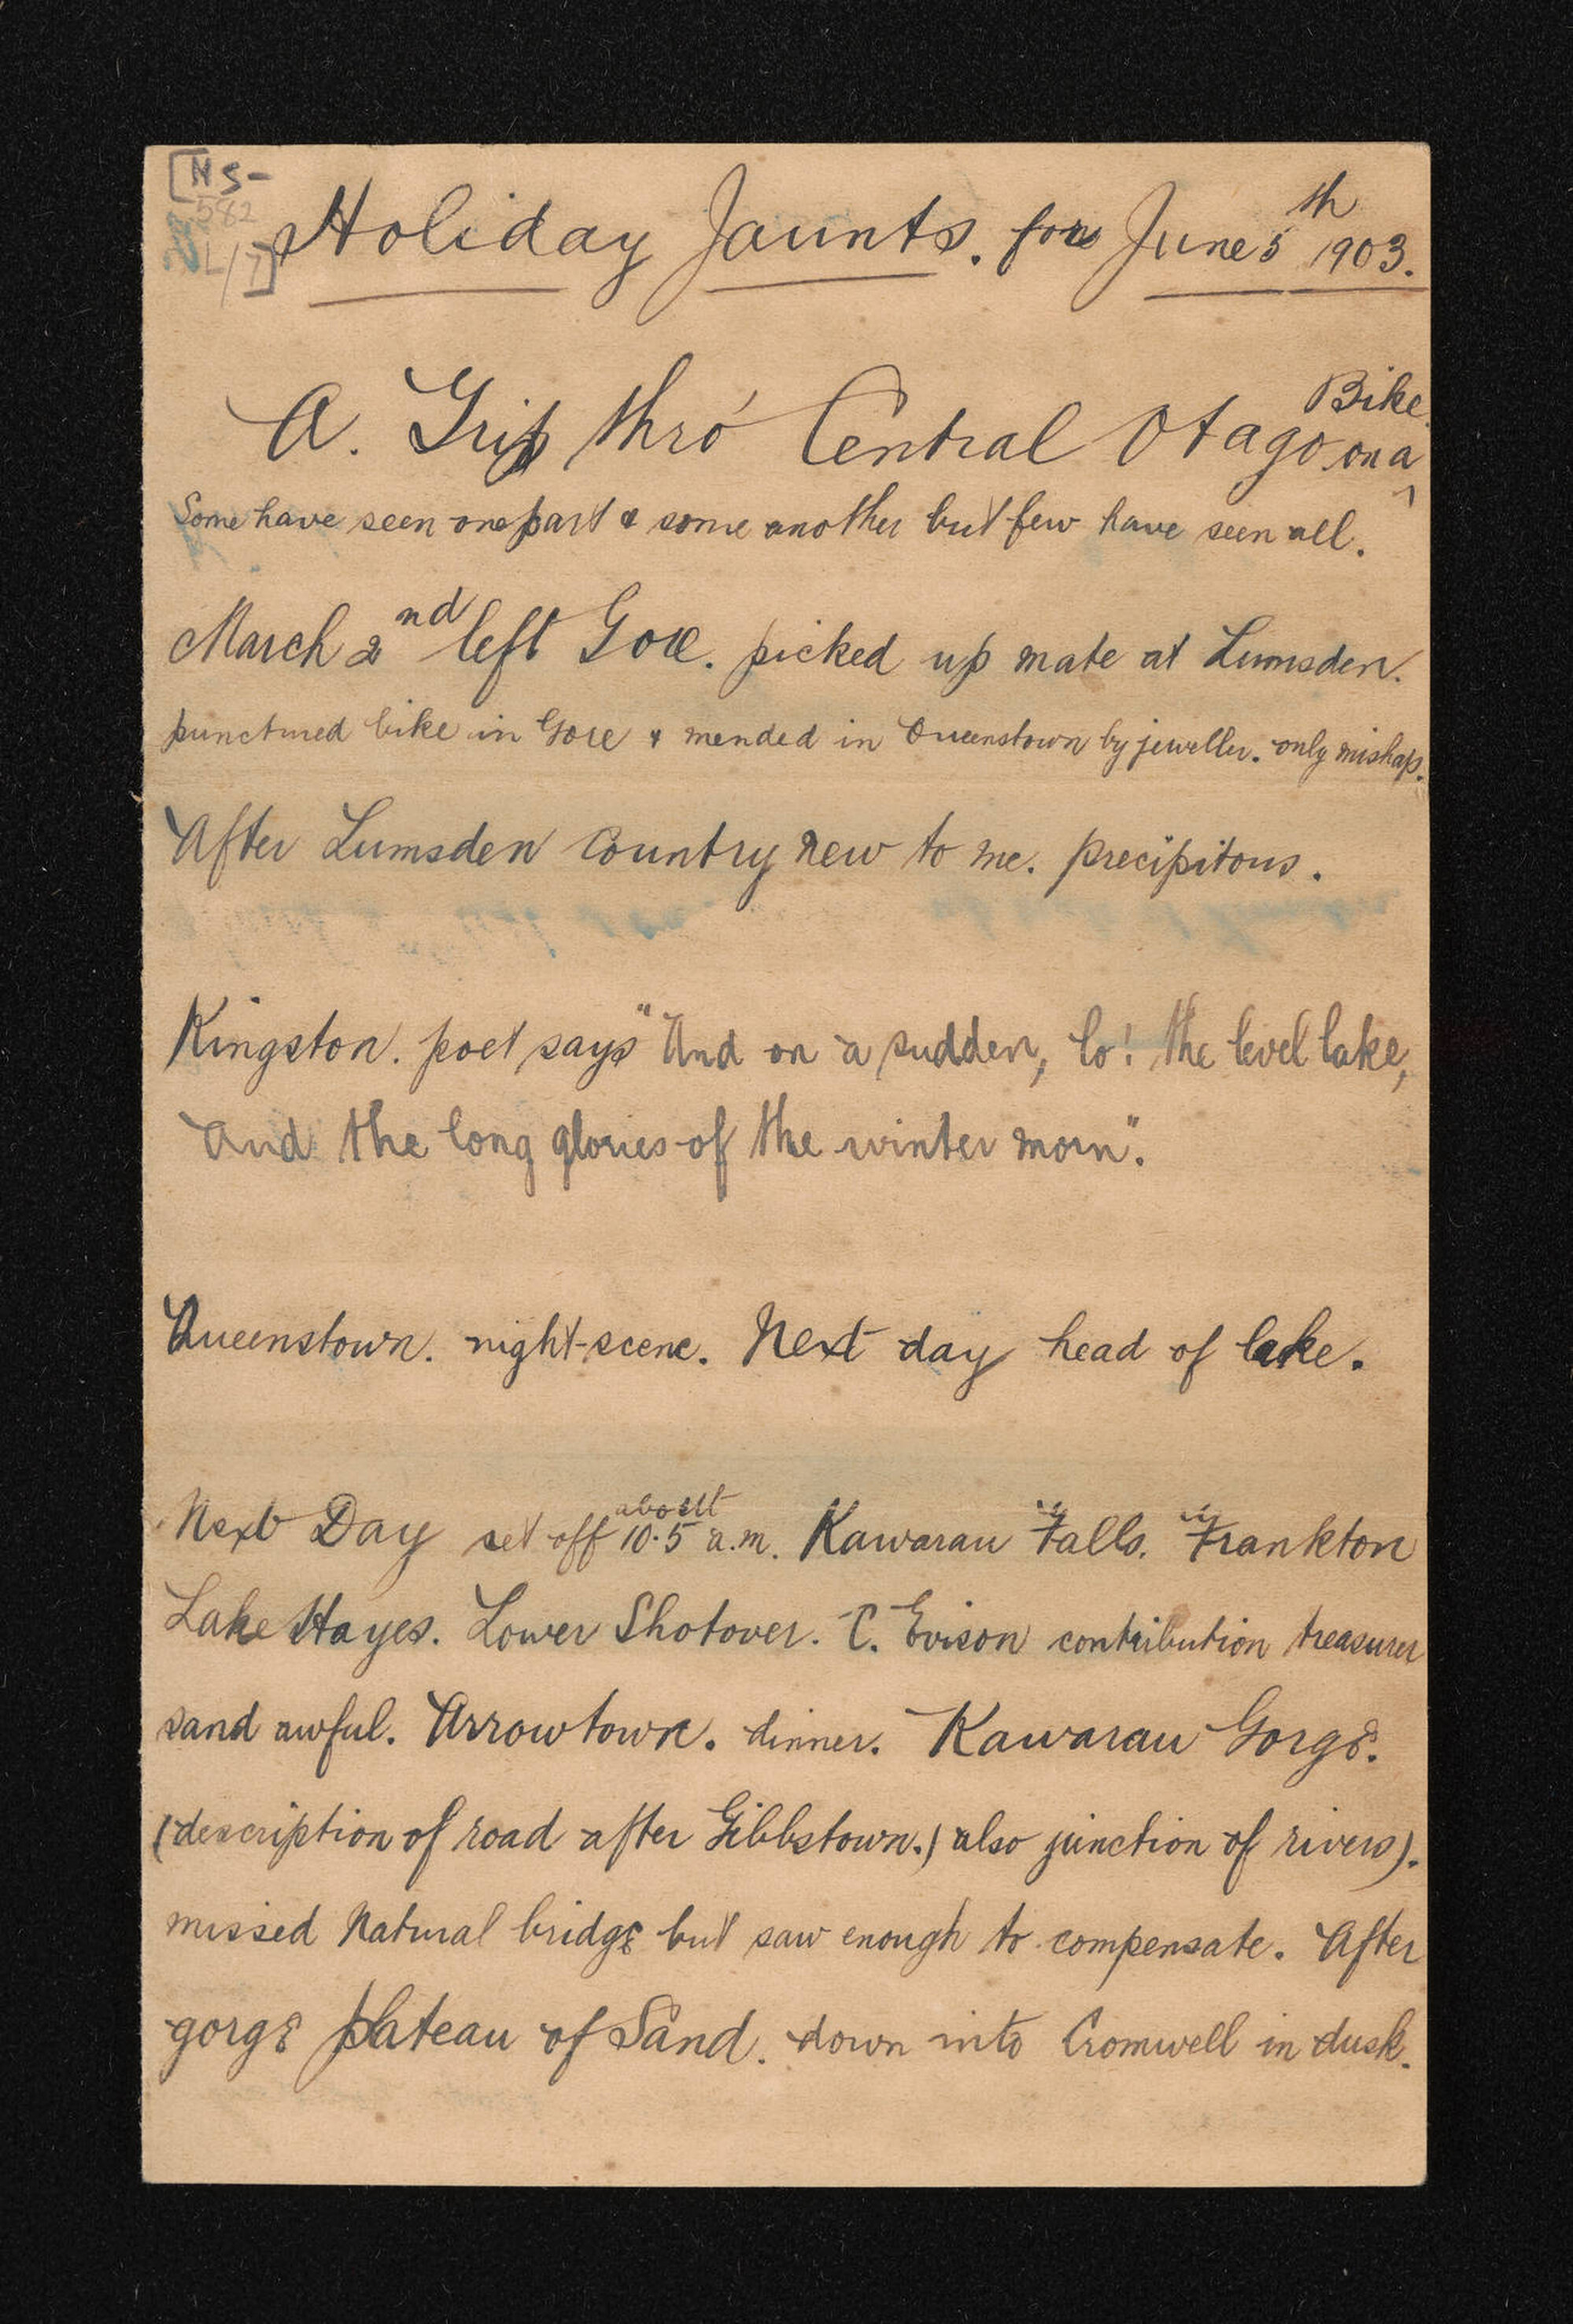 [MS-
582
L/7]
Holiday Jaunts. for June 5th 1903.
A. Trip thro' Central Otago on a Bike.
Some have seen one part & some another but few have seen all.
March 2nd left Gore. picked up mate at Lumsden.
punctured bike in Gore & mended in Queenstown by jeweller. only mishap.
After Lumsden country new to me. precipitous.
Kingston. poet says "And on a sudden, lo! the level lake,
And the long glories of the winter morn".
Queenstown. night-scene. Next day head of lake.
Next Day set off about 10.5 a.m. Kawarau Falls. Frankton
Lake Hayes. Lower Shotover. C. Evison contribution treasurer
sand awful. Arrowtown. dinner. Kawarau Gorge.
(description of road after Gibbstown.) also junction of rivers).
missed Natural bridge but saw enough to compensate. After
gorge plateau of Sand. down into Cromwell in dusk.